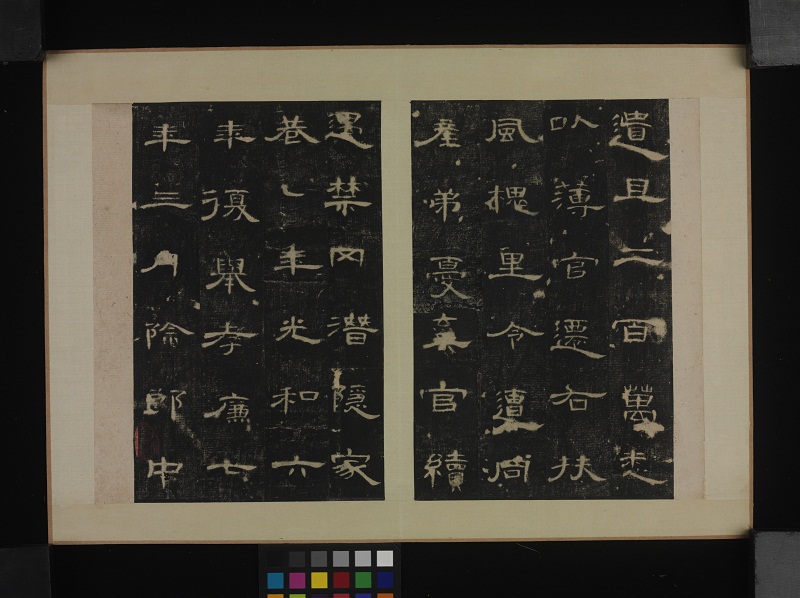 遺且二百萬悉
以薄官遷右扶
風槐里令遭同
產弟憂棄官續
遇禁冈潛隱家
巷七年光和六
年復舉孝廉七
年三月除郎中